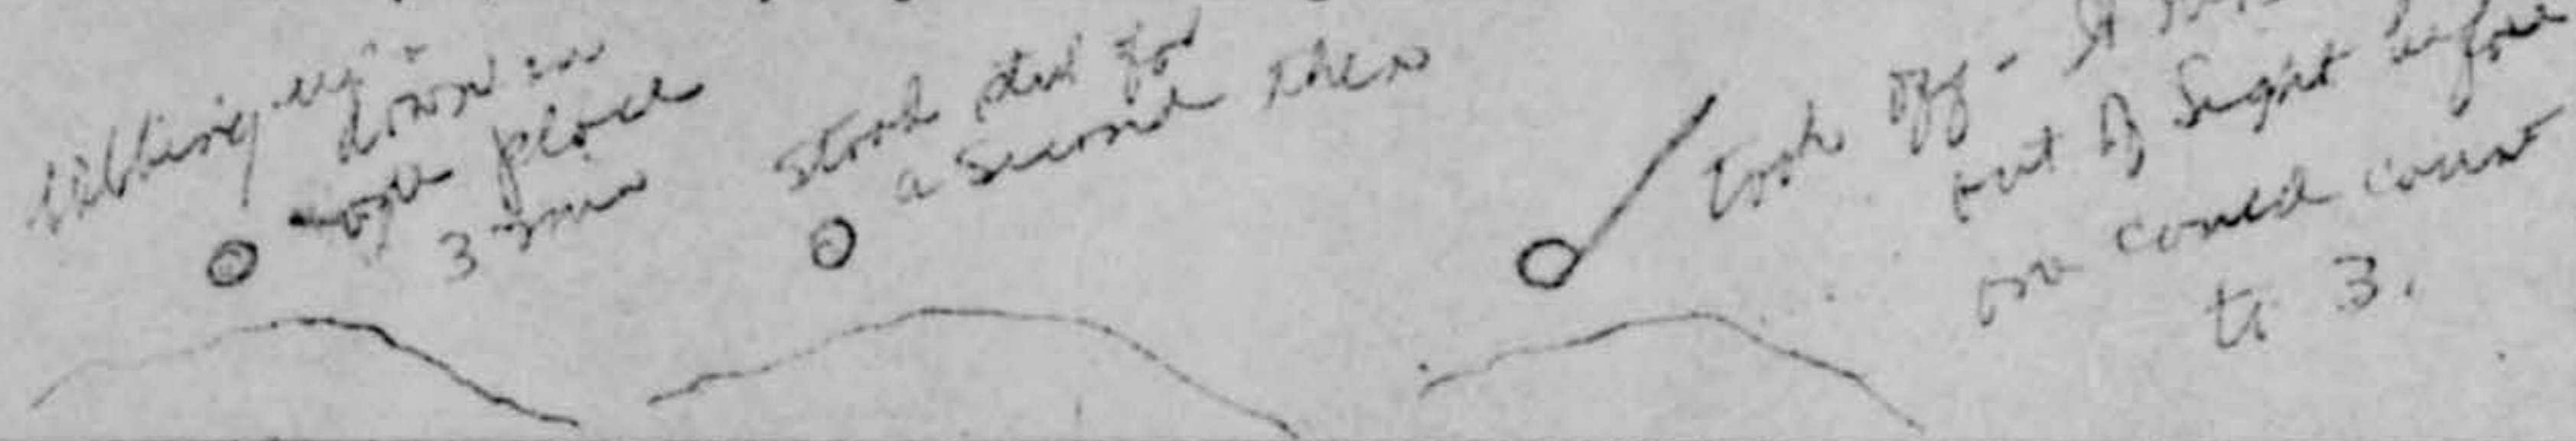 bobbing up &
down in
one place
3 min
stood still for
a second then
took off - It was
out of sight before
one could count
to 3.